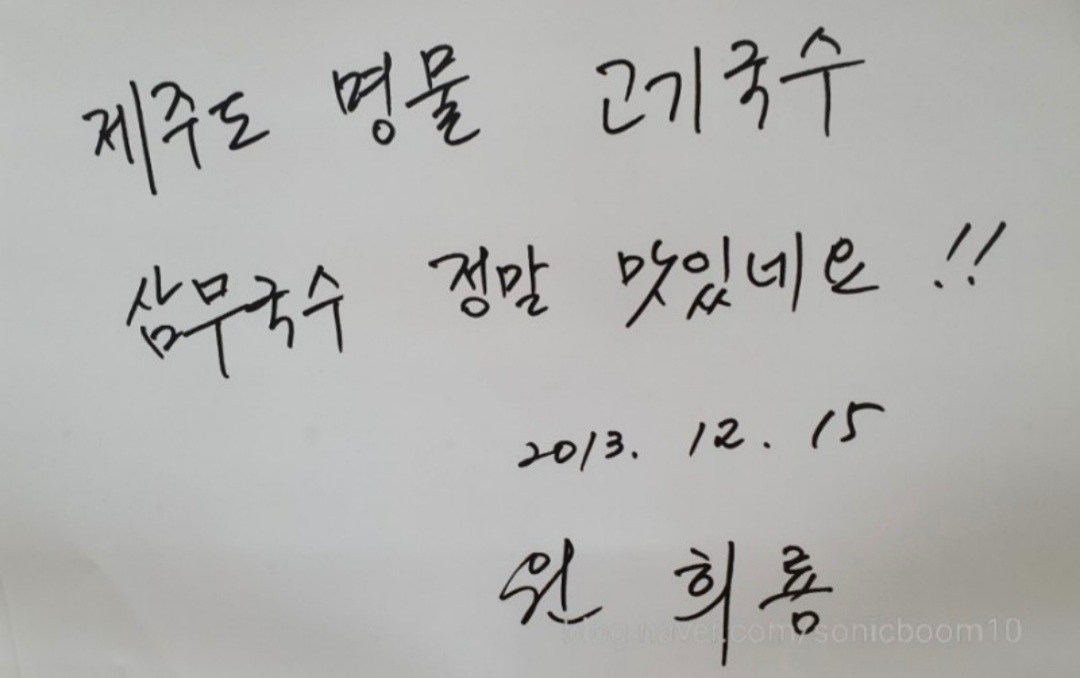 제주도 명물 고기국수
삼무국수 정말 맛있네요!!
2013. 12. 15
원 희 룡
blog.naver.com/sonicboom10